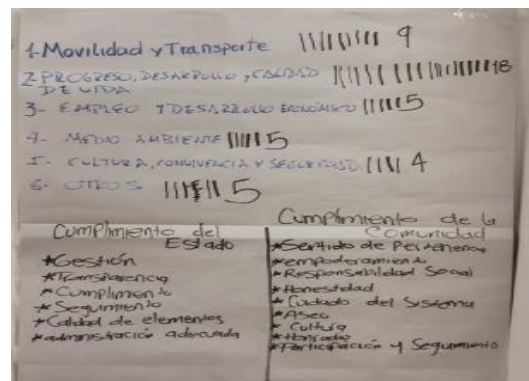 1- Movilidad y Transporte 9
2- PROGRESO, DESARROLLO, CALIDAD 18
DE VIDA
3- EMPLEO Y DESARROLLO ECONÓMICO 5
4- MEDIO AMBIENTE 5
5- CULTURA, CONVIVENCIA Y SEGURIDAD 4
6- OTROS 5
Cumplimiento del
Estado
*Gestión
*Transparencia
*Cumplimento
*Seguimiento
*Calidad de elementos
*administración adecuada
Cumplimiento de la
Comunidad
*Sentido de Pertenencia
*empoderamiento
*Responsabilidad Social
*Honestidad
*Cuidado del Sistema
*Aseo
*Cultura
*Honradez
*Participación y Seguimiento